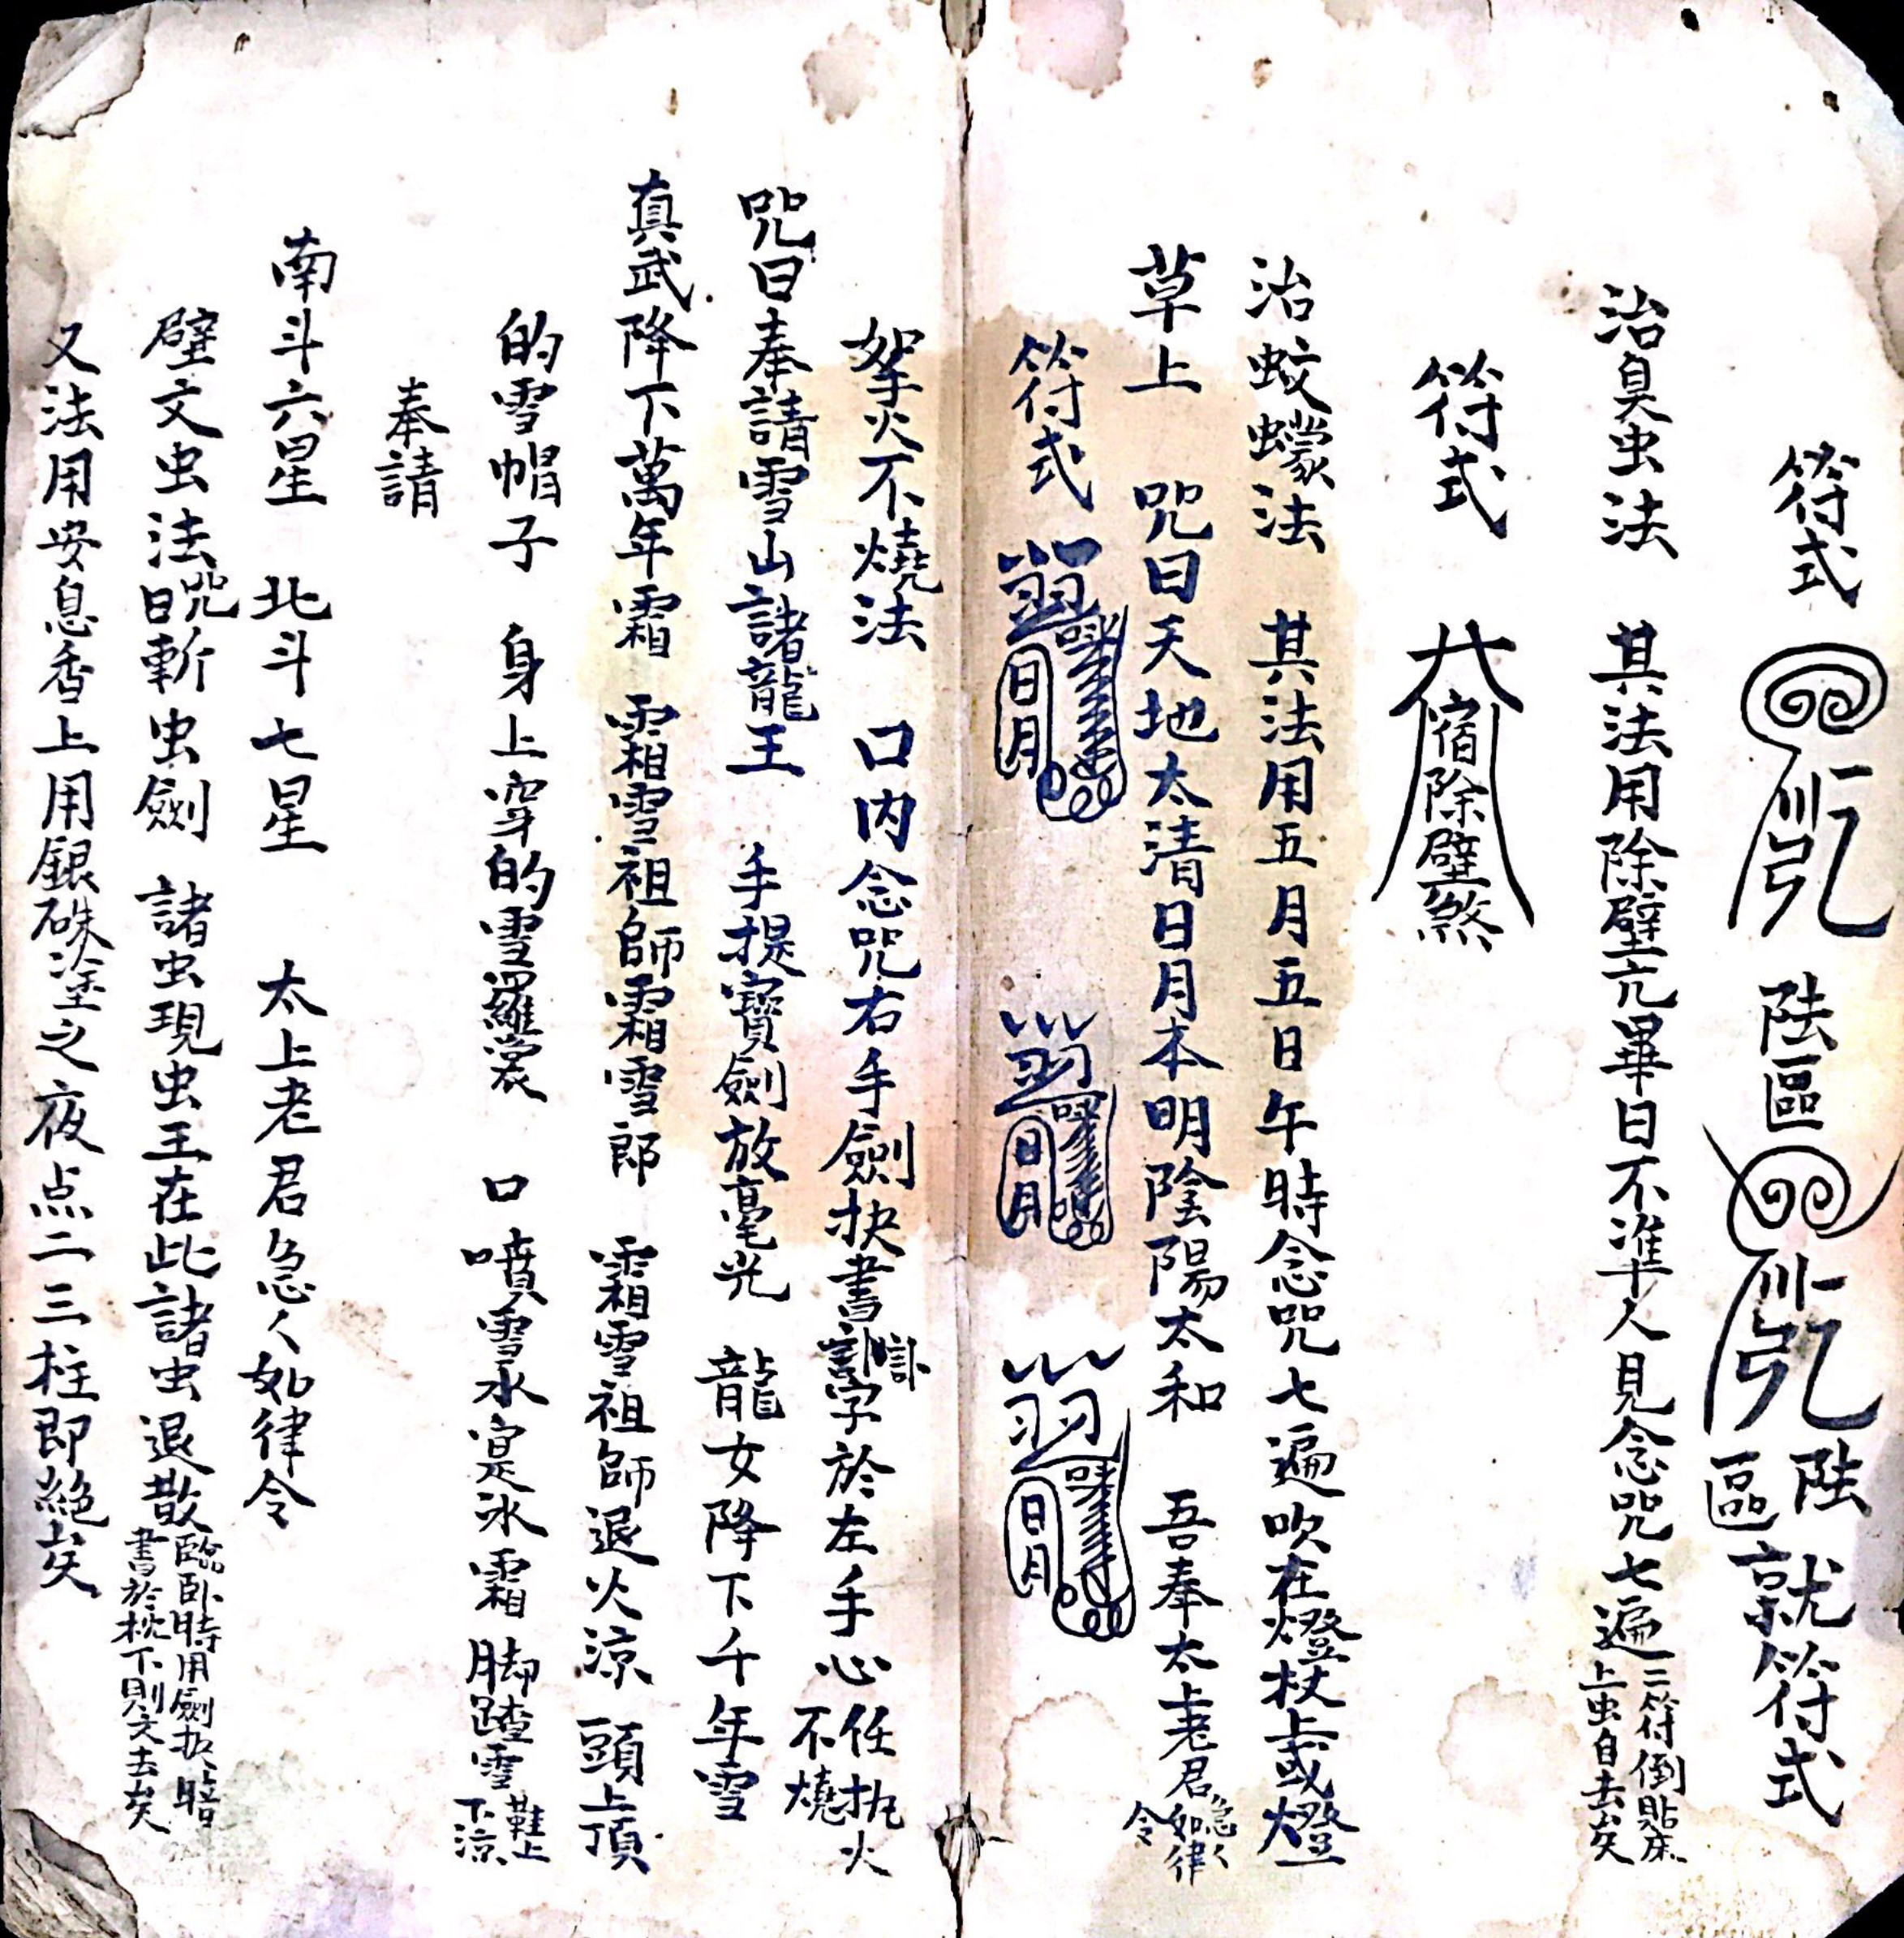 符式 陸區 陸區 就符式
治臭虫法 其法用除壁亢畢日不準人見念咒七遍 二符倒貼床上虫自去矣
符式 宿除壁煞
治蚊蠓法 其法用五月五日午時念咒七遍吹在燈杖上或燈
草上 咒曰天地太清日月本明陰陽太和 吾奉太上老君急〻如律令
符式 日月 日月 日月
拏火不燒法 口内念咒右手劍抉書字於左手心任抓火不燒
咒曰奉請雪山諸龍王 手提寶劍放毫光 龍女降下千年雪
真武降下萬年霜 霜雪祖師霜雪郎 霜雪祖師退火凉 頭上頂
的雪帽子 身上穿的雪羅裳 口噴雪水寔氷霜 脚踏雪鞋上下凉
奉請
南斗六星 北斗七星 太上老君急〻如律令
壁文虫法咒曰斬虫劍 諸虫現虫王在此諸虫退散 臨卧時用劍抉暗書於枕下則文去矣
又法用安息香上用銀硃塗之夜点二三柱即絶矣